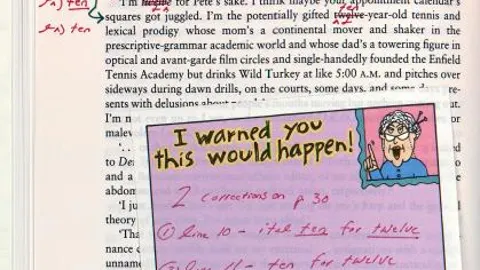 ln) ten
ln) ten
ten
I'm twelve for Pete's sake. I think maybe your appointment calendar's
squares got juggled. I'm the potentially gifted twelve-year-old tennis and
lexical prodigy whose mom's a continental mover and shaker in the
prescriptive-grammar academic world and whose dad's a towering figure in
optical and avant-garde film circles and single-handedly founded the Enfield
Tennis Academy but drinks Wild Turkey at like 5:00 A.M. and pitches over
sideways during dawn drills, on the courts, some days, and some
sents with delusions about
I'm n
malev
to De
and a
abdom
'I ju
theory
'Tha
nance c
unname
I warned you
this would happen!
2 corrections on p 30
① line 10 – ital ten for twelve
line 11 – ten for twelve